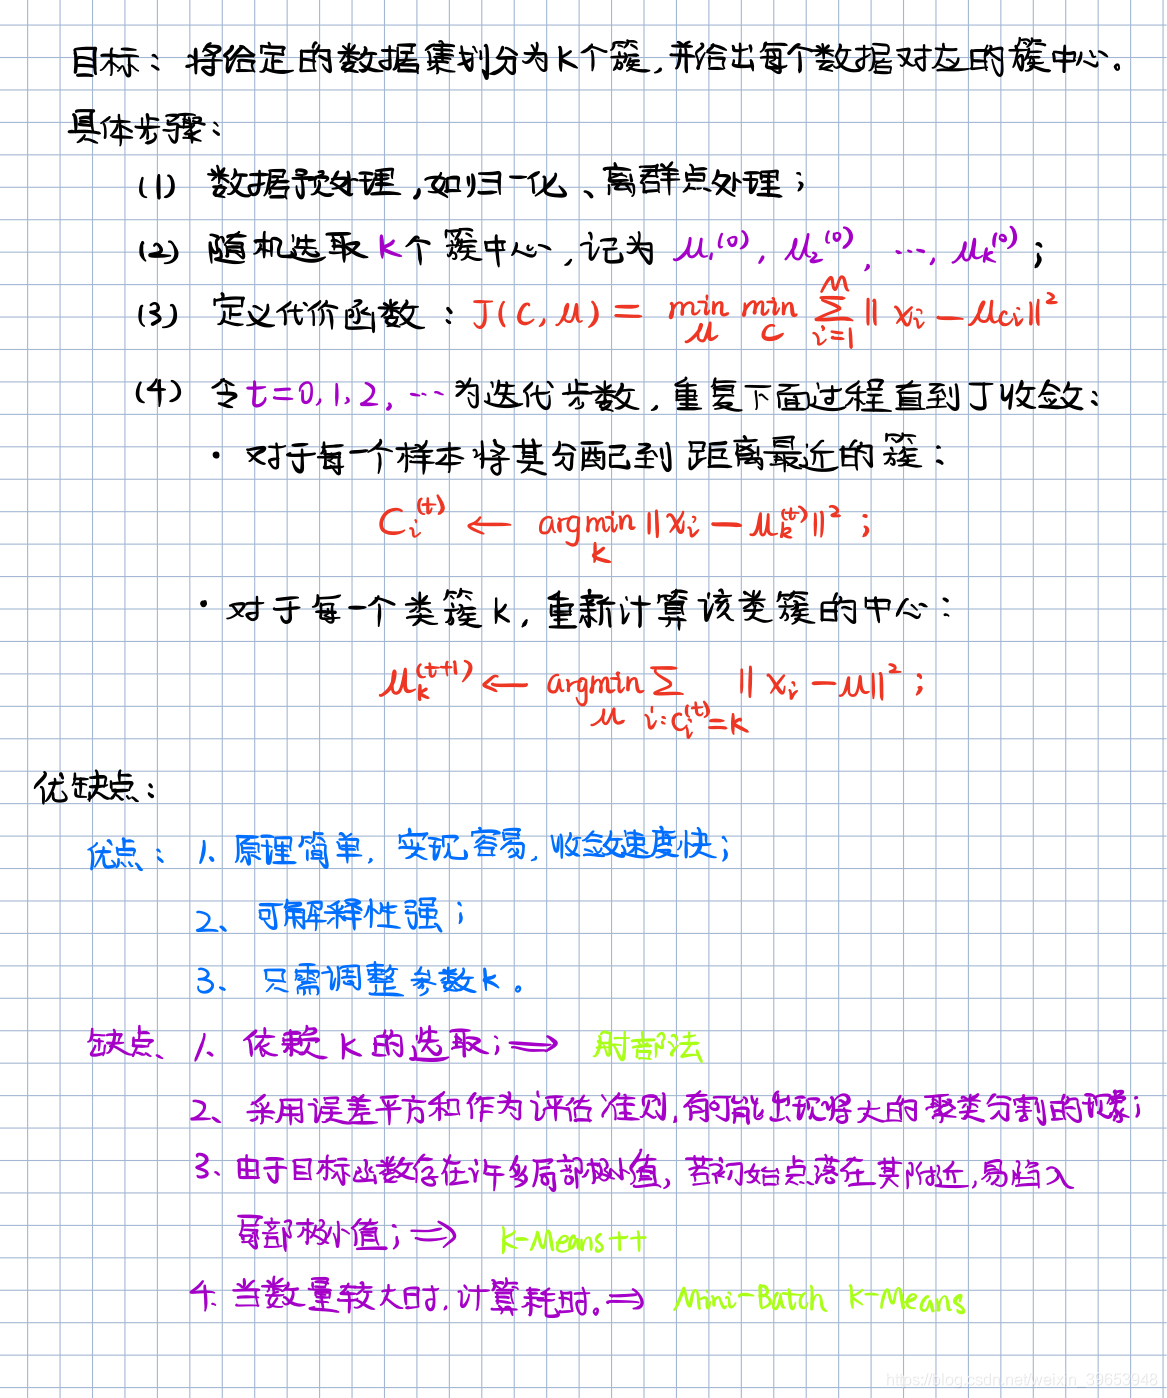 目标：将给定的数据集划分为K个簇，并给出每个数据对应的簇中心。
具体步骤：
(1) 数据预处理，如归一化、离群点处理；
(2) 随机选取K个簇中心，记为 μ₁⁽⁰⁾, μ₂⁽⁰⁾, …, μₖ⁽⁰⁾；
(3) 定义代价函数：J(C,μ) = min_μ min_C ∑_{i=1}^{M} ‖xᵢ − μ_{ci}‖²
(4) 令t=0,1,2,…为迭代步数，重复下面过程直到J收敛：
· 对于每一个样本将其分配到距离最近的簇：
C_i^{(t)} ← argmin_k ‖xᵢ − μ_k^{(t)}‖²；
· 对于每一个类簇k，重新计算该类簇的中心：
μ_k^{(t+1)} ← argmin_μ ∑_{i:C_i^{(t)}=k} ‖xᵢ − μ‖²；
优缺点：
优点：1、原理简单，实现容易，收敛速度快；
2、可解释性强；
3、只需调整参数k。
缺点、1、依赖k的选取；⟹ 肘部法
2、采用误差平方和作为评估准则，有可能出现将大的聚类分割的现象；
3、由于目标函数存在许多局部极小值，若初始点落在其附近，易陷入
局部极小值；⟹ K-Means++
4、当数量较大时，计算耗时。⟹ Mini-Batch K-Means
https://blog.csdn.net/weixin_39653948